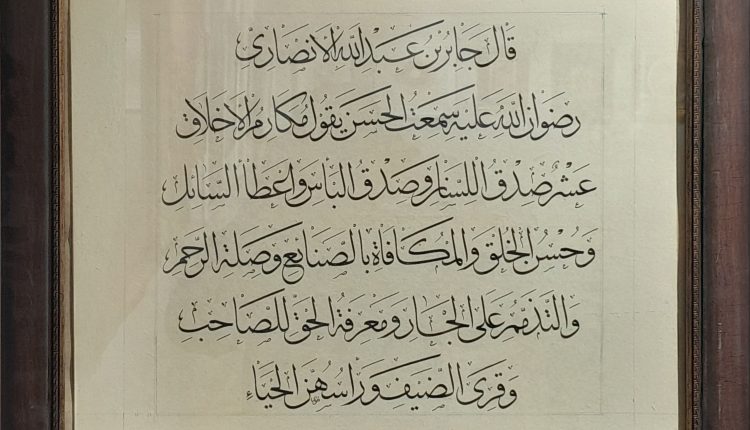 قَالَ جَابِرُ بْنُ عَبْدِ اللهِ الأَنْصَارِيّ
رِضْوَانُ اللهِ عَلَيْهِ سَمِعْتُ الحَسَنَ يَقُولُ مَكَارِمُ الأَخْلَاقِ
عَشْرٌ صِدْقُ اللِّسَانِ وَصِدْقُ البَأْسِ وَإِعْطَاءُ السَّائِلِ
وَحُسْنُ الخُلُقِ وَالمُكَافَأَةُ بِالصَّنَائِعِ وَصِلَةُ الرَّحِمِ
وَالتَّذَمُّمُ عَلَى الجَارِ وَمَعْرِفَةُ الحَقِّ لِلصَّاحِبِ
وَقِرَى الضَّيْفِ وَرَأْسُهُنَّ الحَيَاءُ